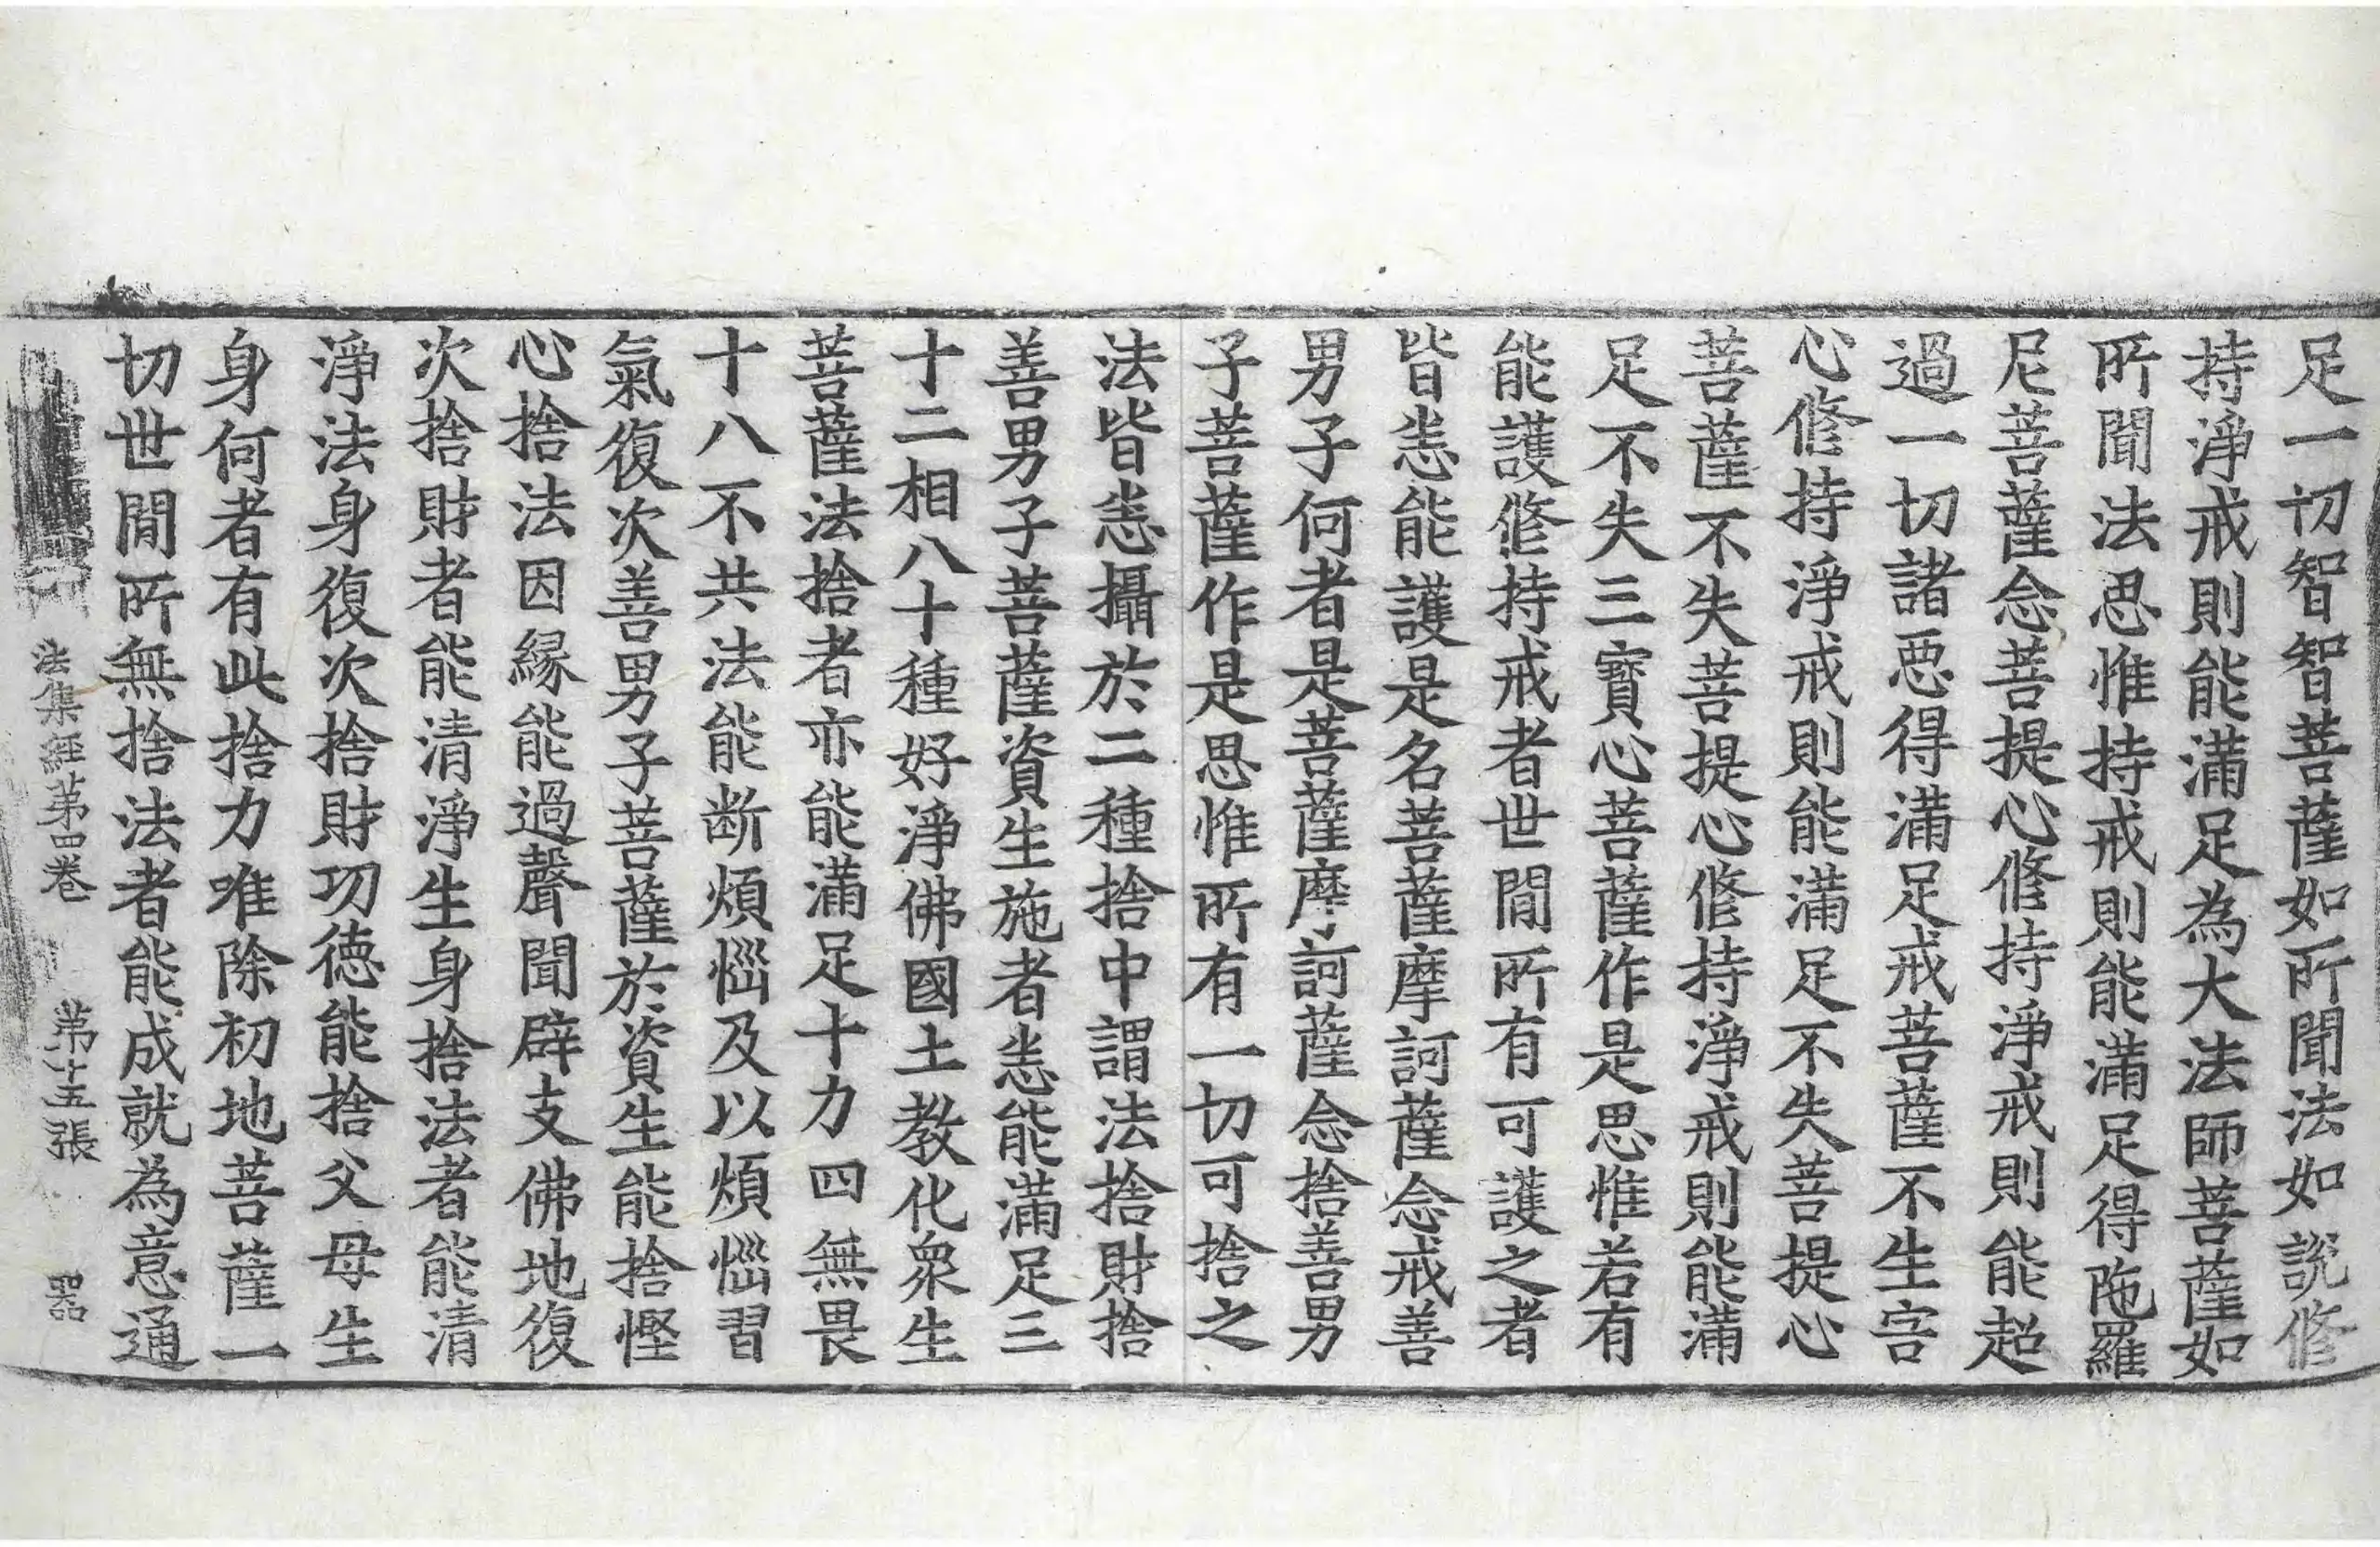 足一切智智菩薩如所聞法如說修
持淨戒則能滿足為大法師菩薩如
所聞法思惟持戒則能滿足得陁羅
尼菩薩念菩提心修持淨戒則能超
過一切諸惡得滿足戒菩薩不生害
心修持淨戒則能滿足不失菩提心
菩薩不失菩提心修持淨戒則能滿
足不失三寶心菩薩作是思惟若有
能護修持戒者世間所有可護之者
皆悉能護是名菩薩摩訶薩念戒善
男子何者是菩薩摩訶薩念捨善男
子菩薩作是思惟所有一切可捨之
法皆悉攝於二種捨中謂法捨財捨
善男子菩薩資生施者悉能滿足三
十二相八十種好淨佛國土教化衆生
菩薩法捨者亦能滿足十力四無畏
十八不共法能断煩惱及以煩惱習
氣復次善男子菩薩於資生能捨慳
心捨法因緣能過聲聞辟支佛地復
次捨財者能清淨生身捨法者能清
淨法身復次捨財功德能捨父母生
身何者有此捨力唯除初地菩薩一
切世間所無捨法者能成就為意通
法集經第四卷　第十五張　器